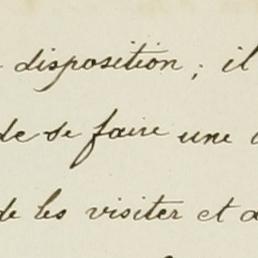 disposition ; il
de se faire une
de les visiter et